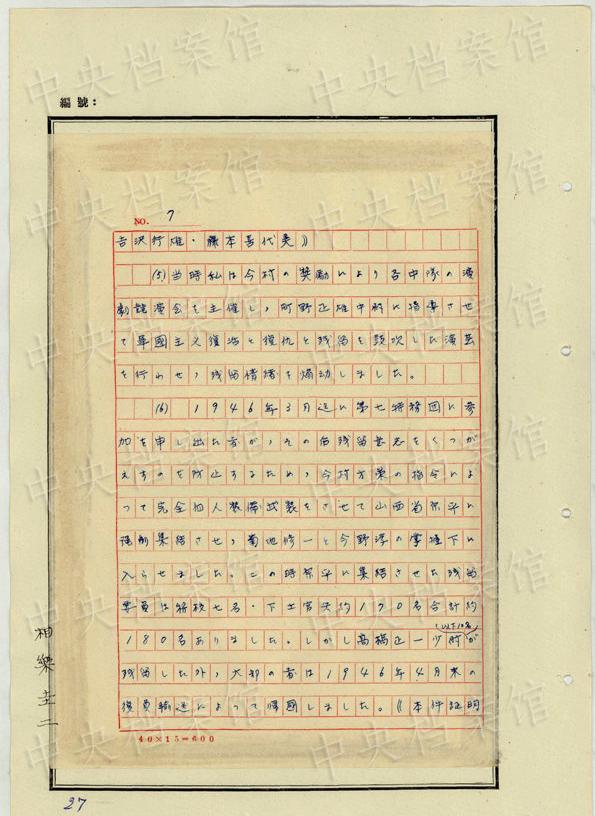 編號：
NO. 7
吉沢行雄・藤本喜代美》
(5)当時私は今村の奨励により各中隊の演
劇講演会を主催し，町野正雄中尉に指導させ
て軍國主义復活と復仇と残留を鼓吹した演芸
を行わせ，残留情緒を煽动しました。
(6) 1946年3月迄に第七特務団に参
加を申し出た者が，その后残留意志をくつが
えすのを防止するため，今村方策の指令によ
って完全個人装備武装をさせて山西省原平に
强制集結させ，菊地修一と今野淳の掌握下に
入らせました。この時原平に集結させた残留
要員は将校七名・下士官兵約170名合計約
180名ありました。しかし高橋正一少尉が
(以下10名)
残留した外，大部の者は1946年4月末の
復員輸送によって帰國しました。《本件証明
40×15=600
相樂圭二
27
中央档案馆